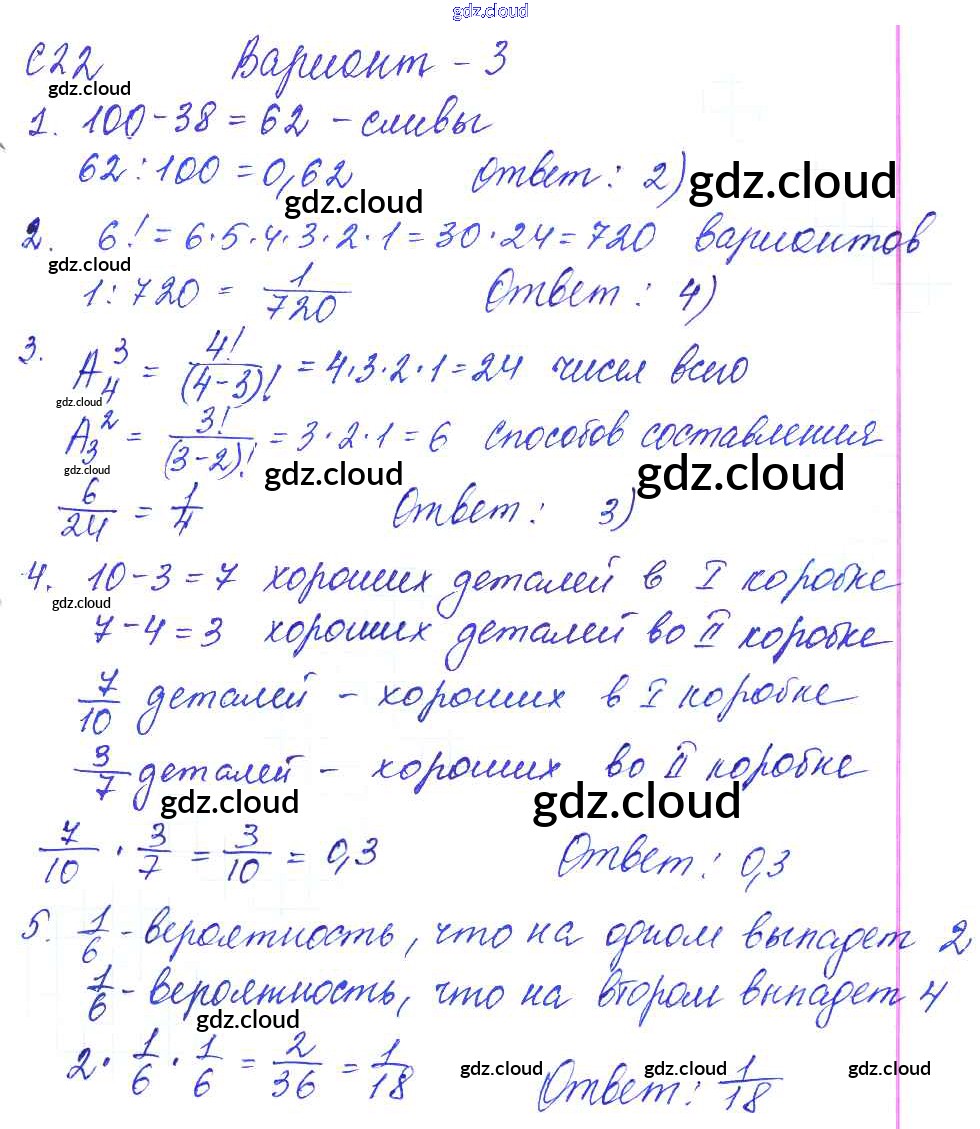 gdz.cloud
С22 Вариант - 3
gdz.cloud
1. 100-38=62 - сливы
62:100=0,62 Ответ: 2) gdz.cloud
gdz.cloud
2. 6!=6·5·4·3·2·1=30·24=720 вариантов
gdz.cloud
1:720 = 1/720 Ответ: 4)
3. A₄³ = 4!/(4-3)! = 4·3·2·1=24 чисел всего
gdz.cloud
A₃² = 3!/(3-2)! = 3·2·1=6 способов составления
gdz.cloud gdz.cloud gdz.cloud
6/24 = 1/4 Ответ: 3)
4. 10-3=7 хороших деталей в I коробке
gdz.cloud
7-4=3 хороших деталей во II коробке
7/10 деталей - хороших в I коробке
3/7 деталей - хороших во II коробке
gdz.cloud gdz.cloud
7/10 · 3/7 = 3/10 = 0,3 Ответ: 0,3
5. 1/6 - вероятность, что на одном выпадет 2
1/6 - вероятность, что на втором выпадет 4
gdz.cloud
2· 1/6 · 1/6 = 2/36 = 1/18 Ответ: 1/18
gdz.cloud gdz.cloud